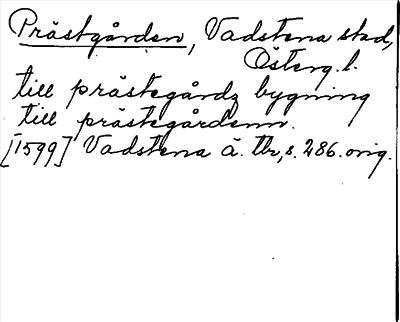 Prästgården, Vadstena stad,
Österg. l.
till prästegårdz bygning
till prästegårdenn.
[1599] Vadstena ä. tb, s. 286. orig.